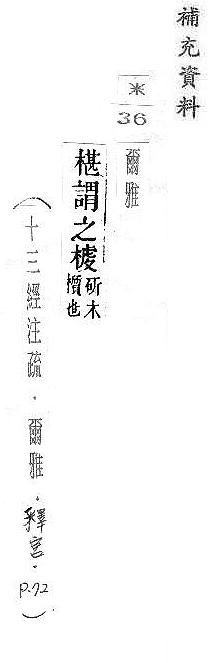 補充資料
※
36
爾雅
椹謂之榩 斫木
櫍也
（十三經注疏．爾雅．釋宮．P.72）